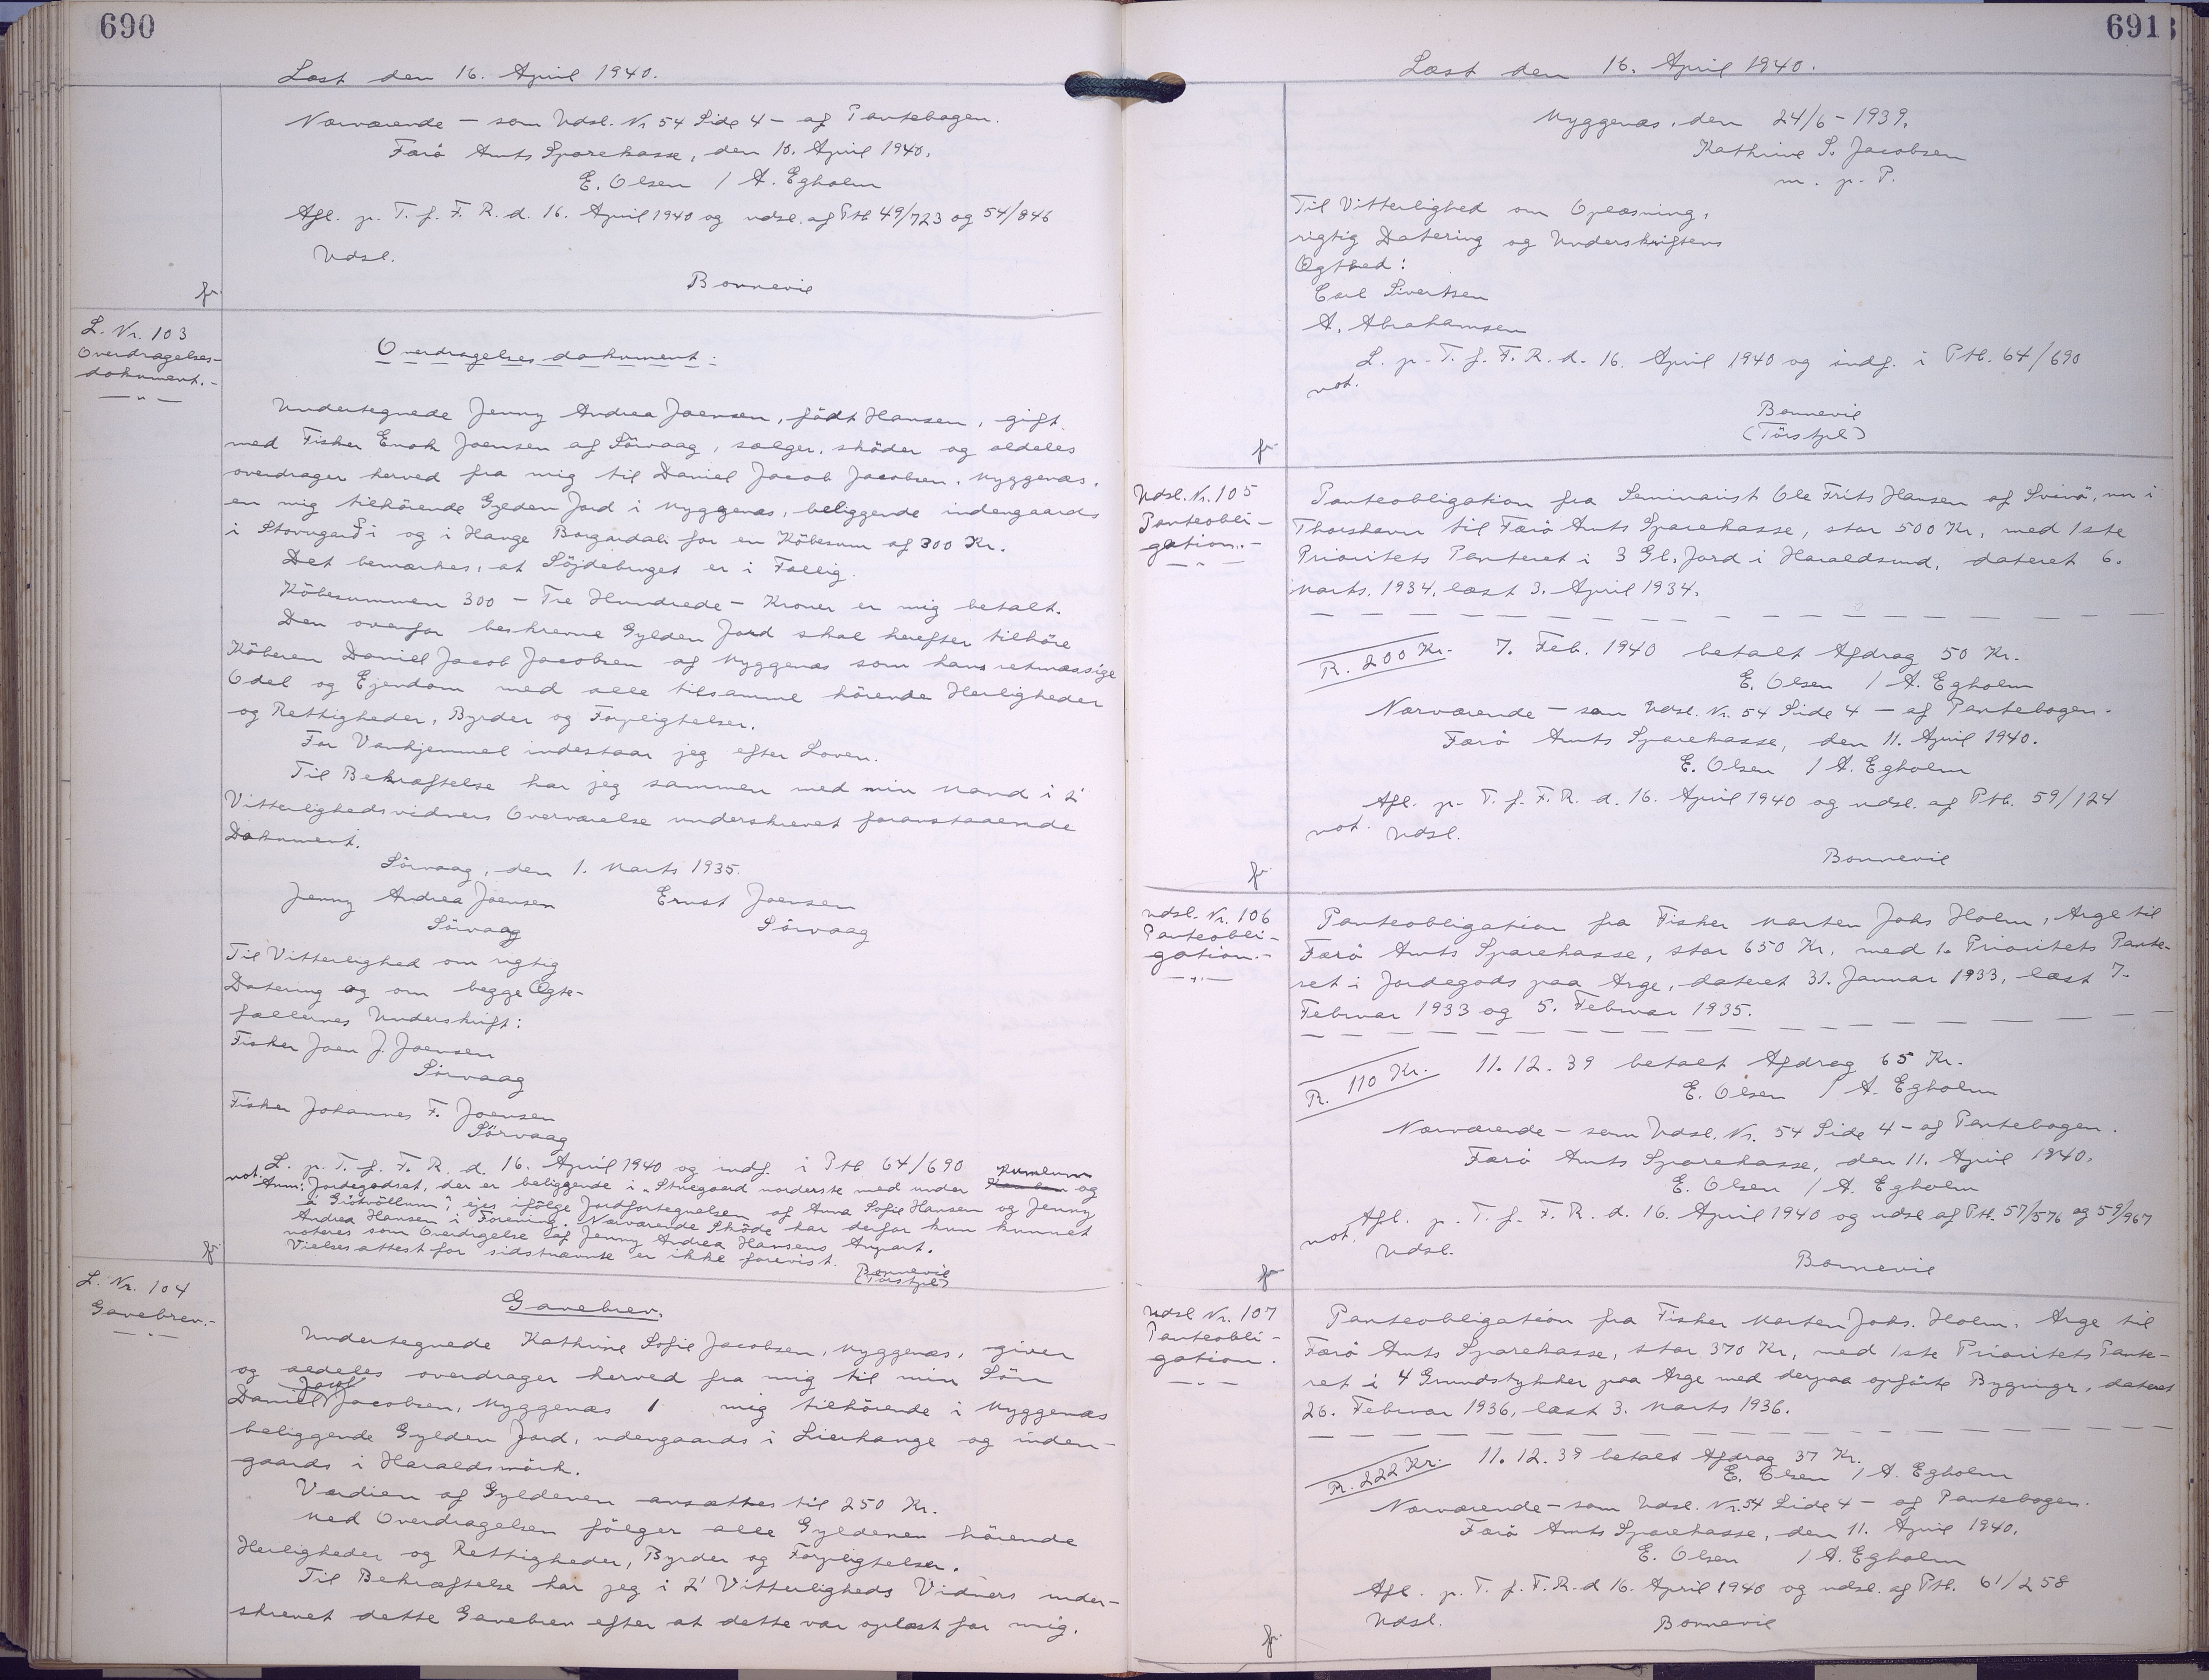 690
Læst den 16. April 1940.
Nærværende – som Udsl. Nr 54 Side 4 – af Pantebogen.
Færö Amts Sparekasse, den 10. April 1940.
E. Olsen / A. Egholm
Afl. p. T. f. F. R. d. 16. April 1940 og udsl. af Ptb 49/723 og 54/846
Udsl.
Bonnevie
fr.
L. Nr. 103
Overdragelses-
dokument.-
Overdragelsesdokument:
Undertegnede Jenny Andrea Joensen, födt Hansen, gift
med Fisker Enok Joensen af Sörvaag, sælger, sköder og aldeles
overdrager herved fra mig til Daniel Jacob Jacobsen, Myggenæs,
en mig tilhörende Gylden Jord i Myggenæs, beliggende indengaards
i Stovugarði og i Hauge Borgardali for en Köbesum af 300 Kr.
Det bemærkes, at Söjdebruget er i Fællig.
Köbesummen 300 – Tre Hundrede – Kroner er mig betalt.
Den ovenfor beskrevne Gylden Jord skal herefter tilhöre
Köberen Daniel Jacob Jacobsen af Myggenæs som hans retmæssige
Odel og Ejendom med alle tilsamme hörende Herligheder
og Rettigheder, Byrder og Forpligtelser.
For Vanhjemmel indestaar jeg efter Loven.
Til Bekræftelse har jeg sammen med min Mand i 2'
Vitterlighedsvidners Overværelse underskrevet foranstaaende
Dokument.
Sörvaag, den 1. Marts 1935.
Jenny Andrea Joensen Ernst Joensen
Sörvaag Sörvaag
Til Vitterlighed om rigtig
Datering og om begge Ægte-
fællernes Underskrift:
Fisker Joen J. Joensen
Sörvaag
Fisker Johannes F. Joensen
Sörvaag
L. p. T. f. F. R. d. 16. April 1940 og indf. i Ptb 64/690
not.
Anm: Jordegodset, der er beliggende i "Stuegaard norderste med under Kumlum og
á Giótvöllum", ejes ifölge Jordfortegnelsen af Anna Sofie Hansen og Jenny
Andrea Hansen i Forening. Nærværende Sköde har derfor kun kunnet
noteres som Overdragelse af Jenny Andrea Hansens Anpart.
Vielsesattest for sidstnævnte er ikke forevist.
Bonnevie
(Törstpl)
fr.
L. Nr. 104
Gavebrev.-
Gavebrev.
Undertegnede Kathrine Sofie Jacobsen, Myggenæs, giver
og aldeles overdrager herved fra mig til min Sön
Daniel Jacob Jacobsen, Myggenæs 1 mig tilhörende i Myggenæs
beliggende Gylden Jord, udengaards i Lierhauge og inden-
gaards i Haraldsmörk.
Værdien af Gyldenen ansættes til 250 Kr.
Med Overdragelsen fölger alle Gyldenen hörende
Herligheder og Rettigheder, Byrder og Forpligtelser.
Til Bekræftelse har jeg i 2' Vitterligheds Vidners under-
skrevet dette Gavebrev efter at dette var oplæst for mig.
691
Læst den 16. April 1940.
Myggenæs, den 24/6 – 1939.
Kathrine S. Jacobsen
m. p. P.
Til Vitterlighed om Oplæsning,
rigtig Datering og Underskriftens
Ægthed:
Carl Sivertsen
A. Abrahamsen
L. p. T. f. F. R. d. 16. April 1940 og indf. i Ptb. 64/690
not.
Bonnevie
(Törstpl)
fr.
Udsl. Nr. 105
Panteobli-
gation.-
Panteobligation fra Seminarist Ole Frits Hansen af Svinö, nu i
Thorshavn til Færö Amts Sparekasse, stor 500 Kr, med 1ste
Prioritets Panteret i 3 Gl. Jord i Haraldsund, dateret 6.
Marts. 1934, læst 3. April 1934.
R. 200 Kr. 7. Feb. 1940 betalt Afdrag 50 Kr.
E. Olsen / A. Egholm
Nærværende – som Udsl. Nr. 54 Side 4 – af Pantebogen.
Færö Amts Sparekasse, den 11. April 1940.
E. Olsen / A. Egholm
Afl. p. T. f. F. R. d. 16. April 1940 og udsl. af Ptb. 59/124
not. Udsl.
Bonnevie
fr.
Udsl. Nr. 106
Panteobli-
gation.-
Panteobligation fra Fisker Morten Johs Holm, Arge til
Færö Amts Sparekasse, stor 650 Kr, med 1. Prioritets Pante-
ret i Jordegods paa Arge, dateret 31. Januar 1933, læst 7.
Februar 1933 og 5. Februar 1935.
R. 110 Kr. 11. 12. 39 betalt Afdrag 65 Kr.
E. Olsen / A. Egholm
Nærværende – som Udsl. Nr. 54 Side 4 – af Pantebogen.
Færö Amts Sparekasse, den 11. April 1940.
E. Olsen / A. Egholm
Afl. p. T. f. F. R. d. 16. April 1940 og udsl af Ptb. 57/576 og 59/967
not. Udsl.
Bonnevie
fr.
Udsl Nr. 107
Panteobli-
gation.
Panteobligation fra Fisker Morten Johs. Holm, Arge til
Færö Amts Sparekasse, stor 370 Kr, med 1ste Prioritets Pante-
ret i 4 Grundstykker paa Arge med derpaa opförte Bygningr, dateret
26. Februar 1936, læst 3. Marts 1936.
R. 222 Kr. 11. 12. 39 betalt Afdrag 37 Kr.
E. Olsen / A. Egholm
Nærværende – som Udsl. Nr. 54 Side 4 – af Pantebogen.
Færö Amts Sparekasse, den 11. April 1940.
E. Olsen / A. Egholm
Afl. p. T. f. F. R. d 16. April 1940 og udsl. af Ptb. 61/258
Udsl.
Bonnevie
fr.